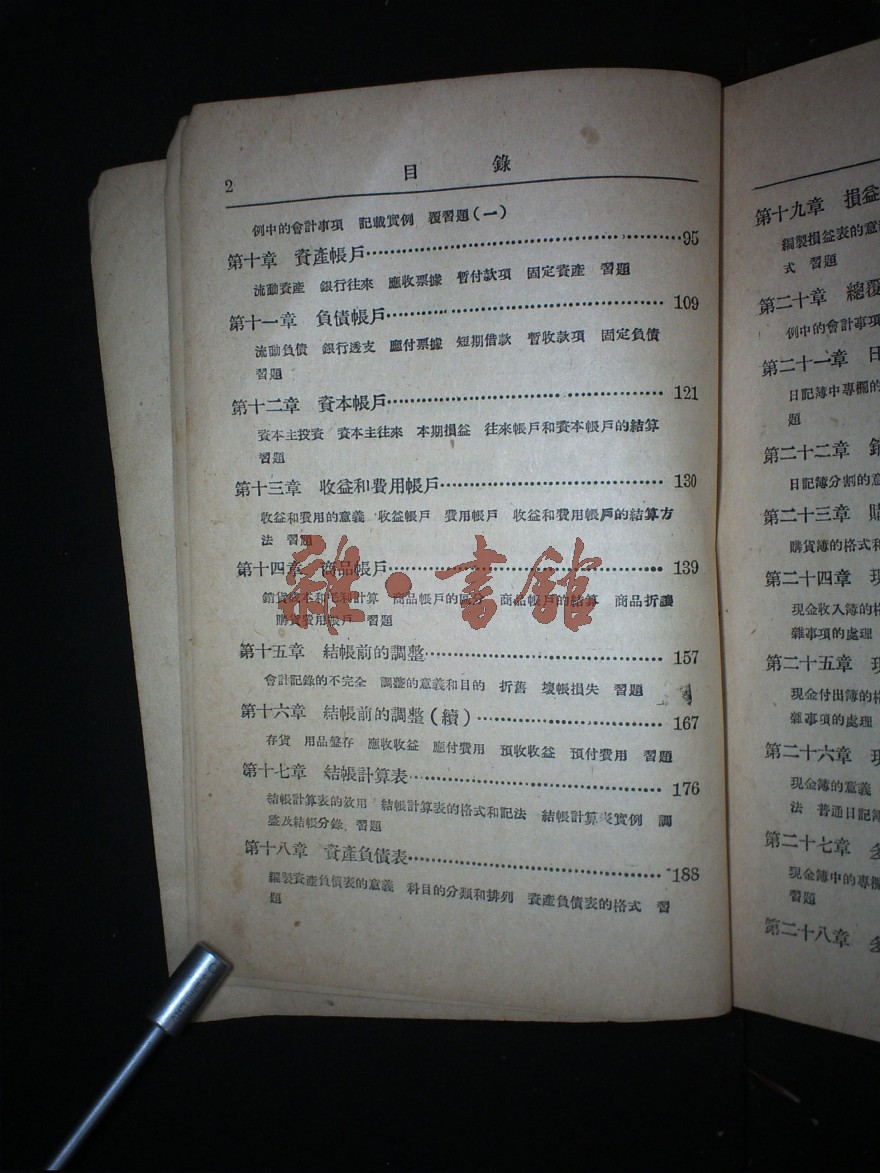 2
目 錄
例中的會計事項 記載實例 覆習題(一)
第十章 資產帳戶……………95
流動資產 銀行往來 應收票據 暫付款項 固定資產 習題
第十一章 負債帳戶……………109
流動負債 銀行透支 應付票據 短期借款 暫收款項 固定負債
習題
第十二章 資本帳戶……………121
資本主投資 資本主往來 本期損益 往來帳戶和資本帳戶的結算
習題
第十三章 收益和費用帳戶……………130
收益和費用的意義 收益帳戶 費用帳戶 收益和費用帳戶的結算方
法 習題
第十四章 商品帳戶……………139
銷貨成本和毛利計算 商品帳戶的區分 商品帳戶的結算 商品折讓
購貨費用帳戶 習題
雜·書館
第十五章 結帳前的調整……………157
會計記錄的不完全 調整的意義和目的 折舊 壞帳損失 習題
第十六章 結帳前的調整(續)……………167
存貨 用品盤存 應收收益 應付費用 預收收益 預付費用 習題
第十七章 結帳計算表……………176
結帳計算表的效用 結帳計算表的格式和記法 結帳計算表實例 調
整及結帳分錄 習題
第十八章 資產負債表……………188
編製資產負債表的意義 科目的分類和排列 資產負債表的格式 習
題
第十九章 損益
編製損益表的意
式 習題
第二十章 總覆
例中的會計事項
第二十一章 日
日記簿中專欄的
題
第二十二章
日記簿分割的意
第二十三章 購
購貨簿的格式和
第二十四章 現
現金收入簿的格
雜事項的處理
第二十五章 現
現金付出簿的格
雜事項的處理
第二十六章 現
現金簿的意義
法 普通日記簿
第二十七章 多
現金簿中的專欄
習題
第二十八章 多